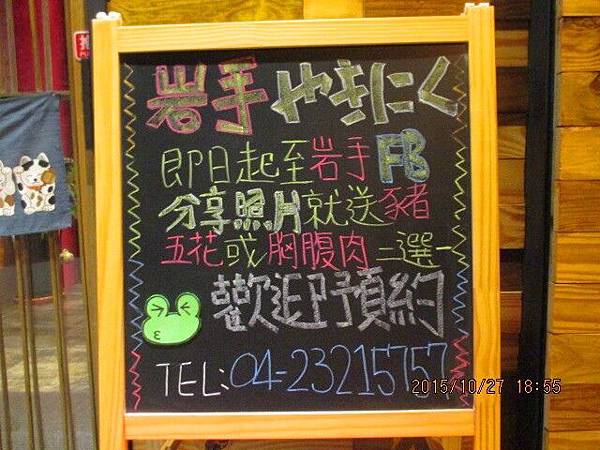 岩手やきにく
即日起至岩手FB
分享照片就送豬
五花或胸腹肉二選一
歡迎預約
TEL:04-23215757
2015/10/27 18:55